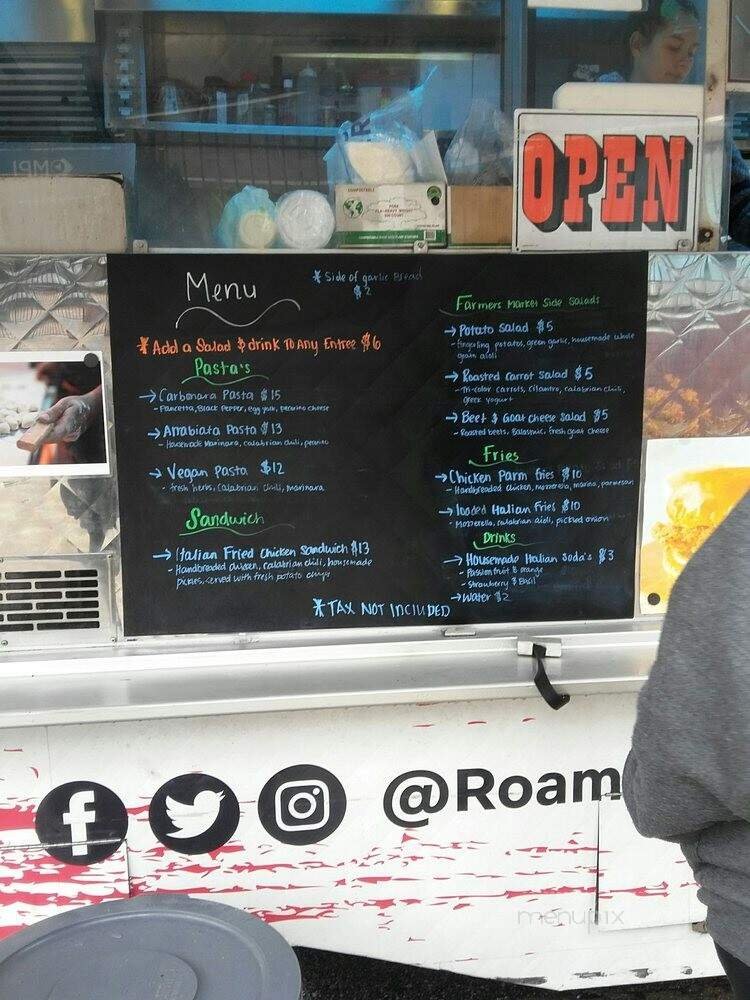 OPEN
COMPOSTABLE
Menu
* Side of garlic Bread
$2
* Add a Salad & drink TO Any Entree $6
Pasta's
→ Carbonara Pasta $15
- Pancetta, Black Pepper, egg yolk, pecorino cheese
→ Arrabiata Pasta $13
- Housemade Marinara, calabrian chili, pecorino
→ Vegan Pasta $12
- fresh herbs, Calabrian chili, marinara
Sandwich
→ Italian Fried Chicken Sandwich $13
- Handbreaded chicken, calabrian chili, housemade
pickles, served with fresh potato chips
Farmers Market Side Salads
→ Potato Salad $5
- fingerling potatos, green garlic, housemade whole
grain aioli
→ Roasted Carrot Salad $5
- Tri-color carrots, cilantro, calabrian chili,
greek yogurt
→ Beet & Goat Cheese Salad $5
- Roasted beets, Balsamic, fresh goat cheese
Fries
→ Chicken Parm fries $10
- Handbreaded chicken, mozzerella, marina, parmesan
→ loaded Italian Fries $10
- Mozzerella, calabrian aioli, pickled onion
Drinks
→ Housemade Italian Soda's $3
- Passionfruit & orange
- Strawberry & Basil
→ Water $2
* TAX NOT INCLUDED
@Roam
menupix